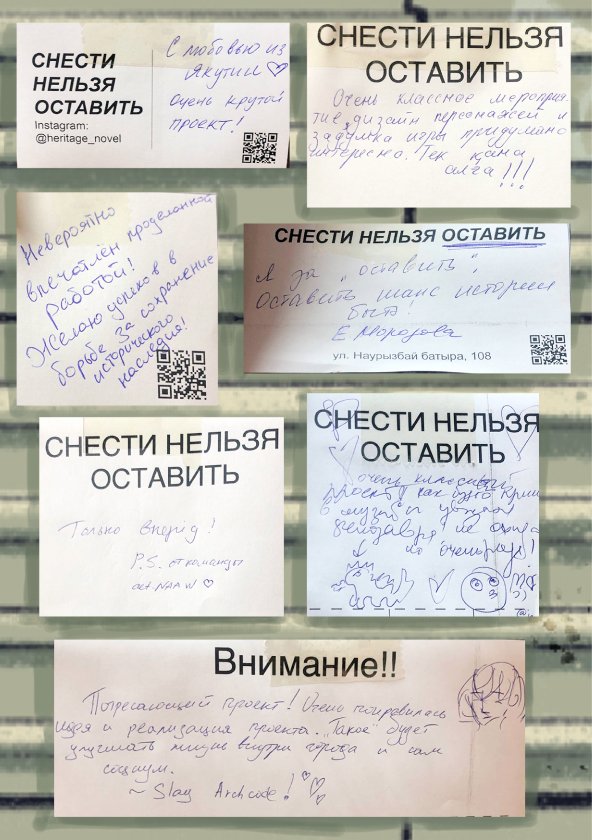 СНЕСТИ
НЕЛЬЗЯ
ОСТАВИТЬ
Instagram:
@heritage_novel
С любовью из
Якутии
Очень крутой
проект!
СНЕСТИ НЕЛЬЗЯ
ОСТАВИТЬ
Очень классное мероприя-
тие, дизайн персонажей и
задумка игры придумано
интересно. Тек қана
алға!!!
Невероятно
впечатлён проделанной
работой!
Желаю успехов в
борьбе за сохранение
исторического
наследия!
СНЕСТИ НЕЛЬЗЯ ОСТАВИТЬ
Я за „оставить“,
Оставить шанс истории
быть!
Е Морозова
ул. Наурызбай батыра, 108
СНЕСТИ НЕЛЬЗЯ
ОСТАВИТЬ
Только вперёд!
P.S. от команды
СНЕСТИ НЕЛЬЗЯ
ОСТАВИТЬ
очень классный
проект! как будто
в музей и увидел
динозавра не
но очень рад!
Внимание!!
Потрясающий проект! Очень понравилась
идея и реализация проекта. „Такое“ будет
улучшать жизнь внутри города и сам
социум.
~ Slay Archcode!